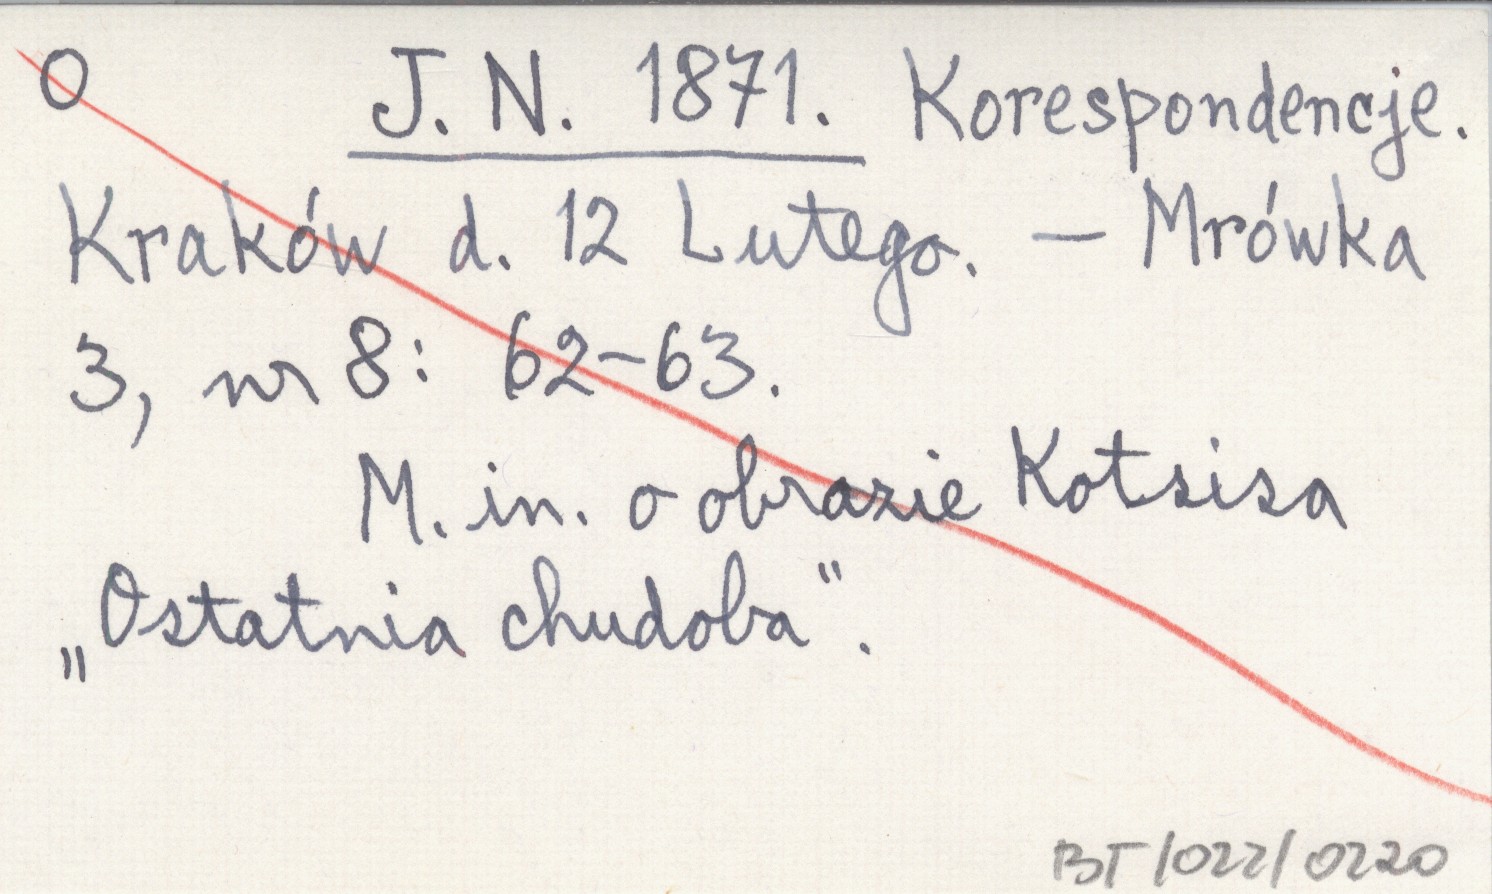 O J. N. 1871. Korespondencje.
Kraków d. 12 Lutego. — Mrówka
3, nr 8: 62–63.
M. in. o obrazie Kotsisa
„Ostatnia chudoba".
BT/022/0220